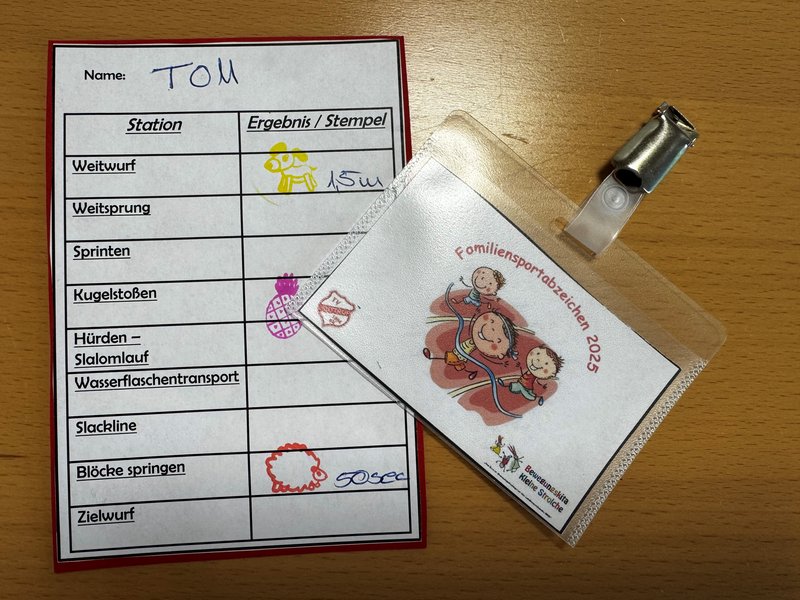 Name: TOM
Station Ergebnis / Stempel
Weitwurf 1,5m
Weitsprung
Sprinten
Kugelstoßen
Hürden –
Slalomlauf
Wasserflaschentransport
Slackline
Blöcke springen 50sec
Zielwurf
Familiensportabzeichen 2025
Bewegungskita
Kleine Strolche